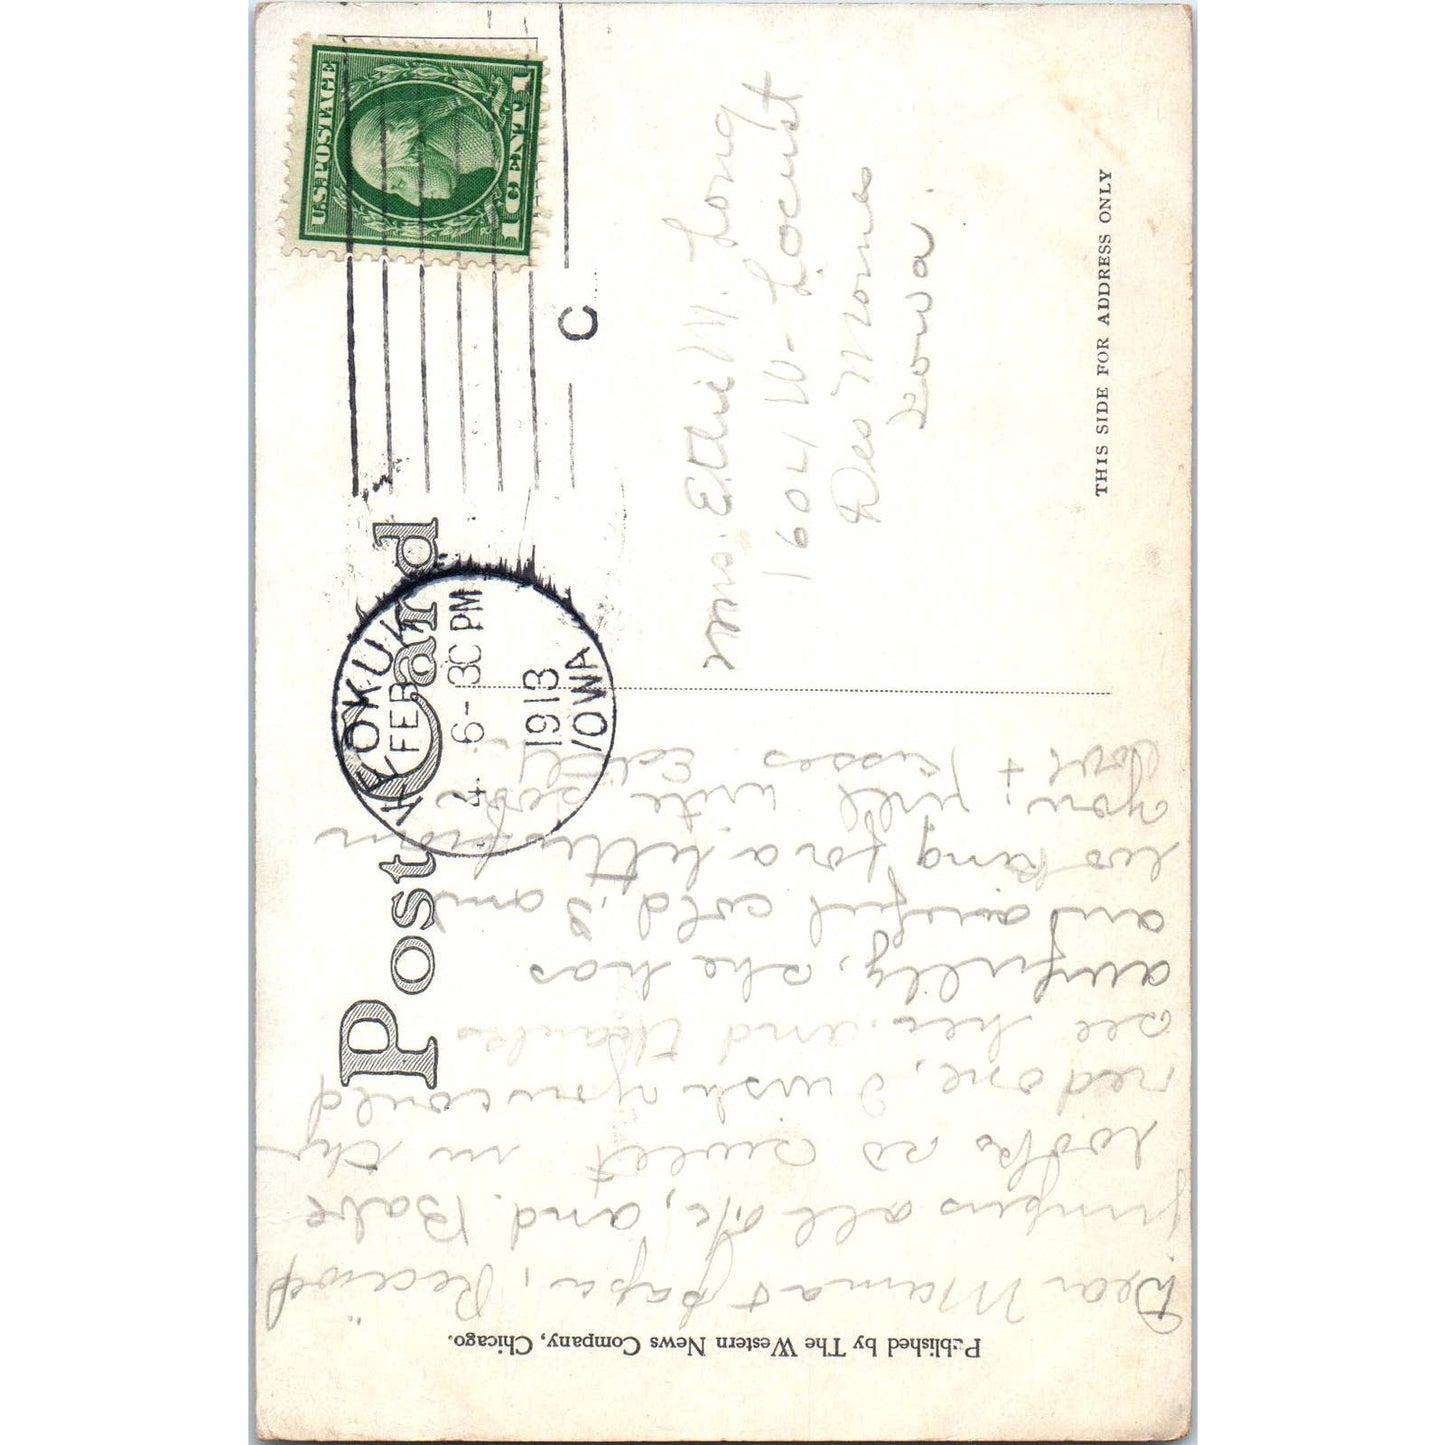 Post Card
KEOKUK
FEB
4 6-30 PM
1913
IOWA
C
U.S. POSTAGE
1 CENT 1
Mrs. Ethel M. Long
1604 W. Locust
Des Moines
Iowa.
THIS SIDE FOR ADDRESS ONLY
Published by The Western News Company, Chicago.
Dear Mama + papa, Received
jumpers all o.k., and Babe
looks so sweet in the
red one, I wish you could
see her. and thanks
awfully, she has
an awful cold. and
looking for a letter from
you, will write soon
love + kisses Edith